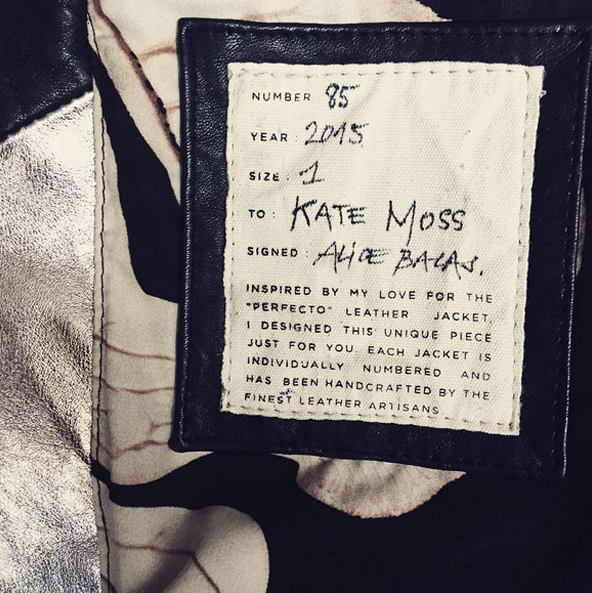 NUMBER 85
YEAR : 2015
SIZE : 1
TO : KATE MOSS
SIGNED : ALICE BALAS.
INSPIRED BY MY LOVE FOR THE
"PERFECTO" LEATHER JACKET,
I DESIGNED THIS UNIQUE PIECE
JUST FOR YOU. EACH JACKET IS
INDIVIDUALLY NUMBERED AND
HAS BEEN HANDCRAFTED BY THE
FINEST LEATHER ARTISANS